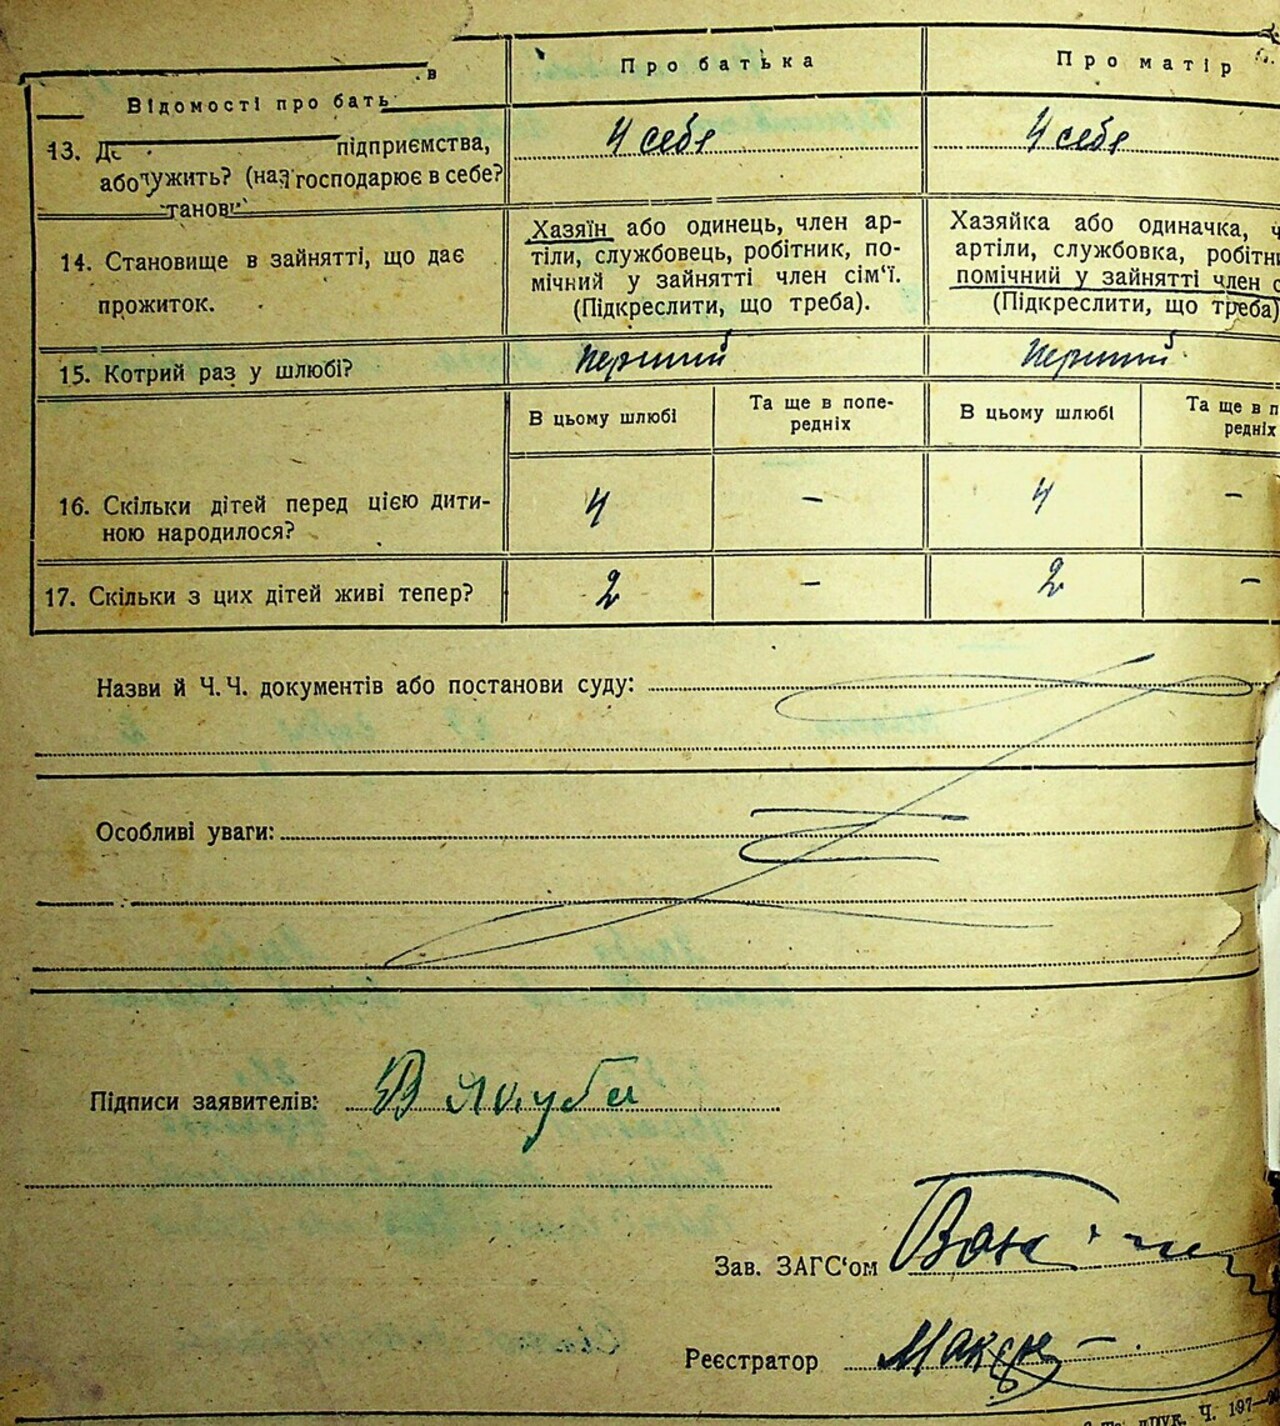 Про батька
Про матір
Відомості про бать в
13. підприємства,
або тужить? (на господарює в себе?
танов
У себе
У себе
14. Становище в зайнятті, що дає
прожиток.
Хазяїн або одинець, член ар-
тіли, службовець, робітник, по-
мічний у зайнятті член сім‘ї.
(Підкреслити, що треба).
Хазяйка або одиначка, ч
артіли, службовка, робітни
помічний у зайнятті член с
(Підкреслити, що треба)
15. Котрий раз у шлюбі?
перший
перший
В цьому шлюбі
Та ще в попе-
редніх
В цьому шлюбі
Та ще в п
редніх
16. Скільки дітей перед цією дити-
ною народилося?
4
–
4
–
17. Скільки з цих дітей живі тепер?
2
–
2
–
Назви й Ч.Ч. документів або постанови суду:
Особливі уваги:
Підписи заявителів:
Зав. ЗАГС‘ом
Реєстратор
Ч. 197—